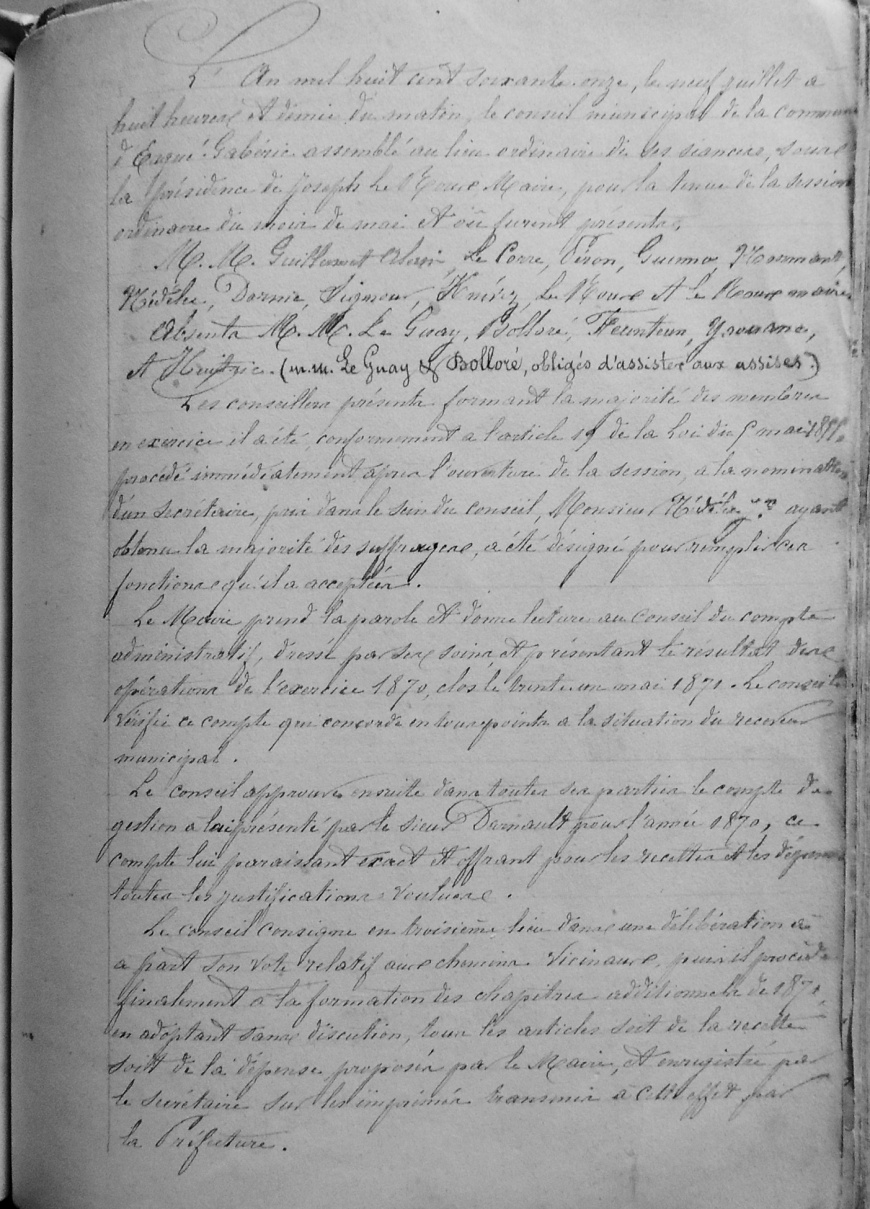 L'An mil huit cent soixante onze, le neuf juillet à
huit heures et demie du matin, le conseil municipal de la commune
d'Ergué-Gabéric assemblé au lieu ordinaire de ses séances, sous
la présidence de Joseph Le Roux Maire, pour la tenue de la session
ordinaire du mois de mai et où furent présents,
M. M. Guillermet Alain, Le Corre, Péron, Guéno, Normant,
Nédélec, Darnic, Signour, Huérz, Le Roux et le Roux maire
Absents M. M. Le Guay, Bolloré, Feunteun,
et Huitric. (m.m. Le Guay & Bolloré, obligés d'assister aux assises.)
Les conseillers présents formant la majorité des membres
en exercice il a été, conformement à l'article 19 de la Loi du 5 mai 1855
procédé immédiatement après l'ouverture de la session, à la nomination
d'un secrétaire, pris dans le sein du conseil, Monsieur Nédélec ayant
obtenu la majorité des suffrages, a été désigné pour remplir ces
fonctions qu'il a acceptées.
Le Maire prend la parole et donne lecture au Conseil du compte
administratif, dressé par ses soins et présentant le résultat des
opérations de l'exercice 1870, clos le trente un mai 1871. Le conseil
vérifie ce compte qui concorde en tous points à la situation du receveur
municipal.
Le conseil approuve ensuite dans toutes ses parties le compte de
gestion à lui présenté par le sieur Dernault pour l'année 1870, ce
compte lui paraissant exact et offrant pour les recettes et les dépenses
toutes les justifications voulues.
Le conseil consigne en troisième lieu dans une délibération
à part son vote relatif aux chemins vicinaux, puis il procède
finalement à la formation des chapitres additionnels de 1871,
en adoptant sans discution, tous les articles soit de la recette
soit de la dépense proposés par le Maire, et enregistré par
le secrétaire sur les imprimés transmis à cet effet par
la Préfecture.